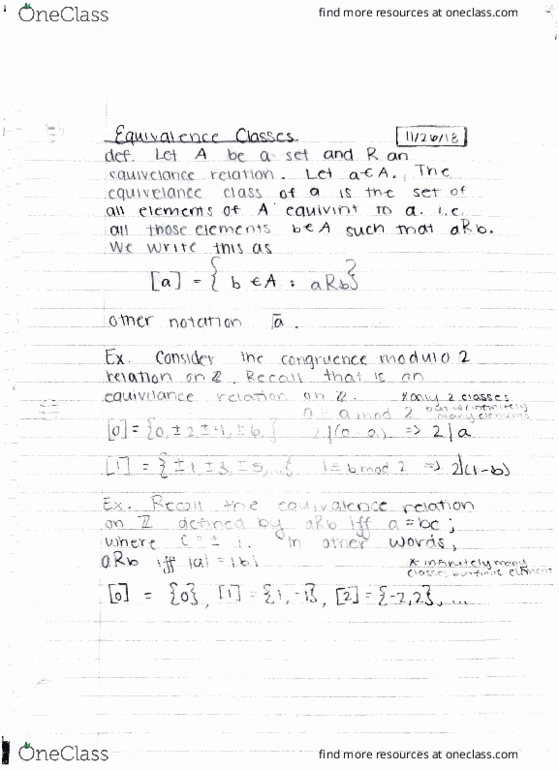 OneClass
find more resources at oneclass.com
Equivalence Classes
11/26/18
def. Let A be a set and R an
equivelance relation. Let a∈A. The
equivelance class of a is the set of
all elements of A equivint to a. i.e.
all those elements b∈A such that aRb.
We write this as
[a] = { b ∈ A : aRb}
other notation a̅.
Ex. Consider the congruence modulo 2
relation on ℤ. Recall that is an
equivilance relation on ℤ. *only 2 classes
0 ≡ a mod 2 but w/ infinitely many elements
[0] = {0, ±2, ±4, ±6, 2|(0-a) => 2|a
[1] = { ±1, ±3, ±5, 1 ≡ b mod 2 => 2|(1-b)
Ex. Recall the equivalence relation
on ℤ defined by aRb iff a = bc;
where c = ± 1. In other words,
aRb iff |a| = |b|
* infinitely many
classes but finite element
[0] = {0}, [1] = {1, -1}, [2] = {-2,2}, ...
OneClass
find more resources at oneclass.com